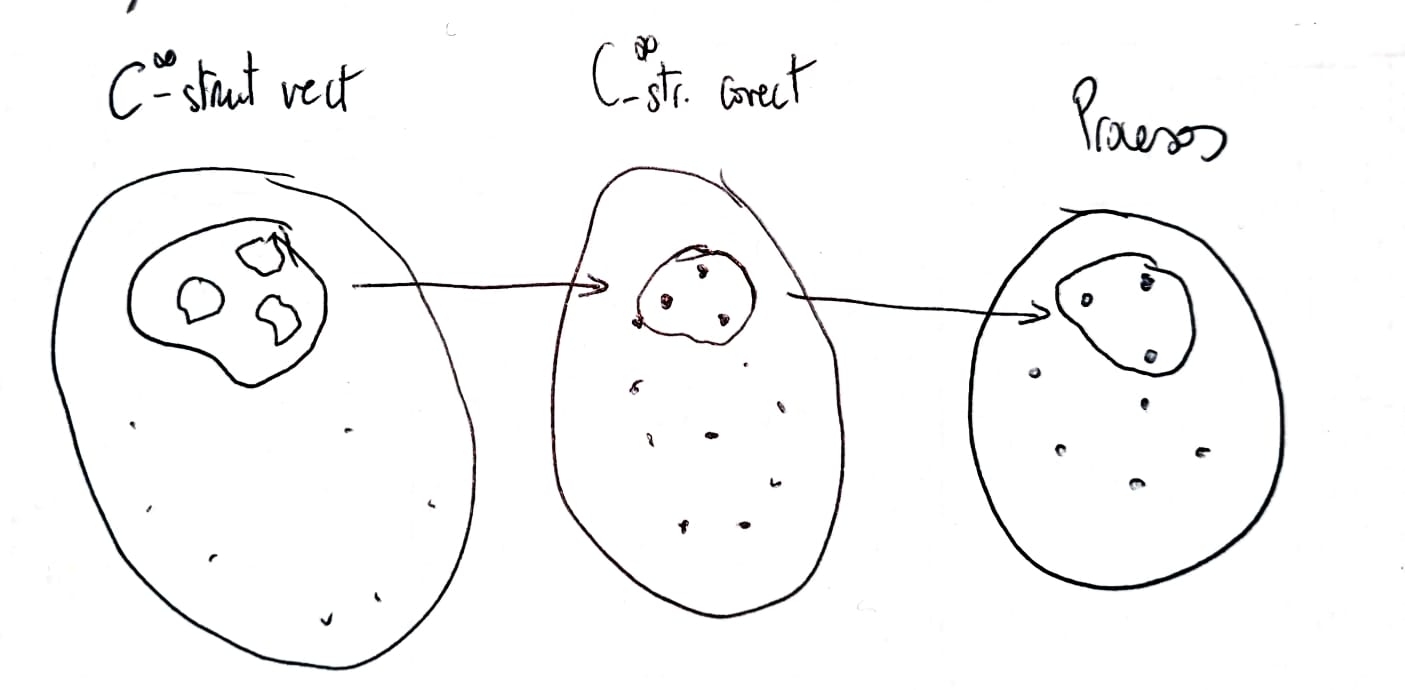 C^∞-strut vect
C^∞-str. covect
Procesos